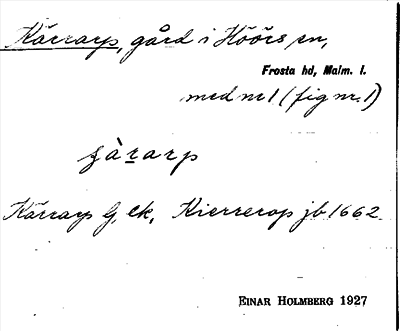 Kärrarp, gård i Höörs sn,
Frosta hd, Malm. l.
med nr 1 (fig nr. 1)
Kärrarp G, ek, Kierrerop jb 1662.
EINAR HOLMBERG 1927